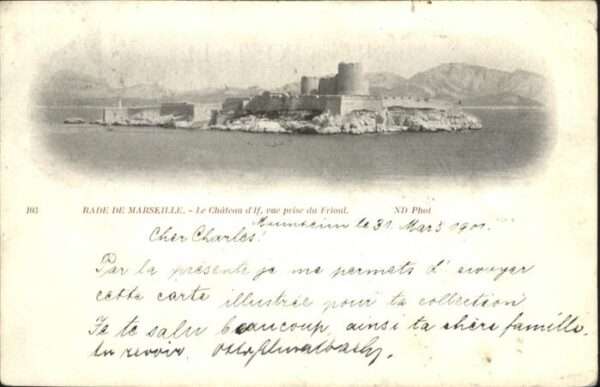 103 RADE DE MARSEILLE. - Le Château d'If, vue prise du Frioul. ND Phot
le 31 Mars 1901.
Cher Charles!
Par la présente je me permets d'envoyer
cette carte illustrée pour ta collection
Je te salu beaucoup, ainsi ta chère famille.
Au revoir.